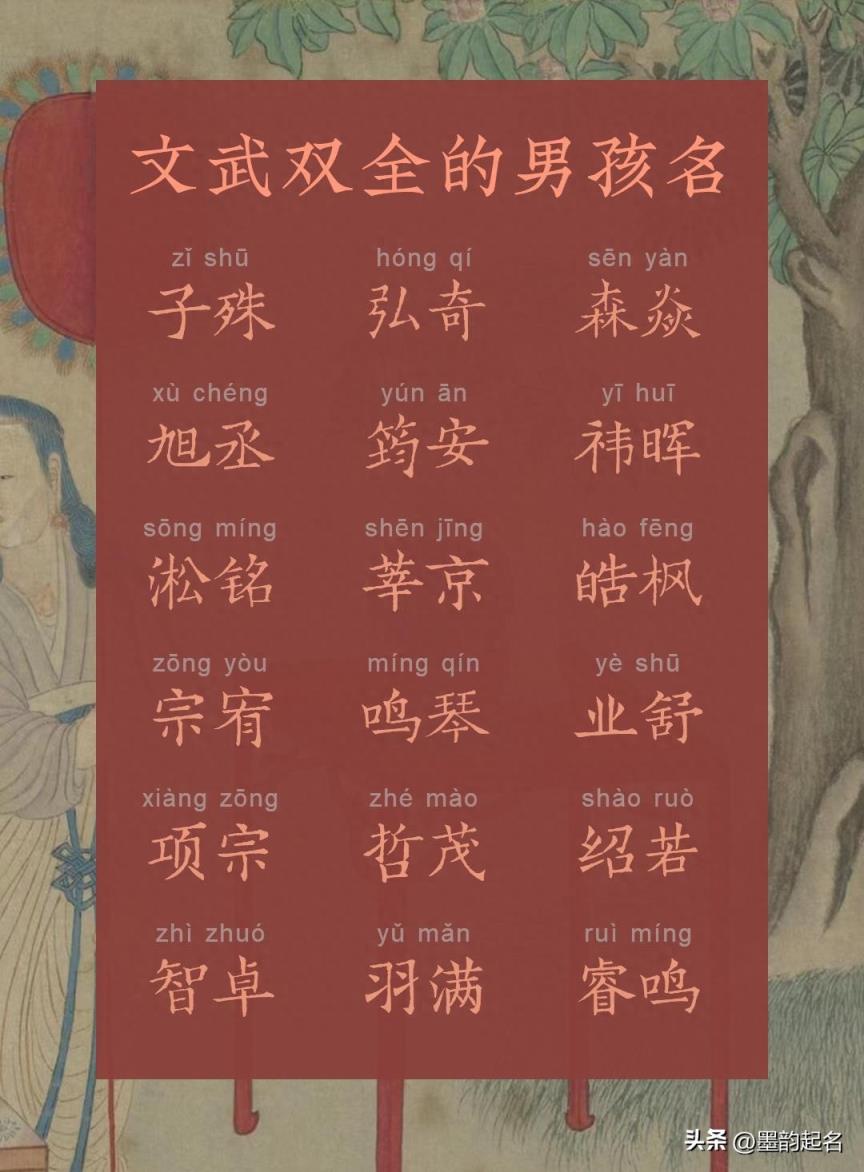 文武双全的男孩名
zǐ shū hóng qí sēn yàn
子殊 弘奇 森焱
xù chéng yún ān yī huī
旭丞 筠安 祎晖
sōng míng shēn jīng hào fēng
淞铭 莘京 皓枫
zōng yòu míng qín yè shū
宗宥 鸣琴 业舒
xiàng zōng zhé mào shào ruò
项宗 哲茂 绍若
zhì zhuó yǔ mǎn ruì míng
智卓 羽满 睿鸣
头条 @墨韵起名